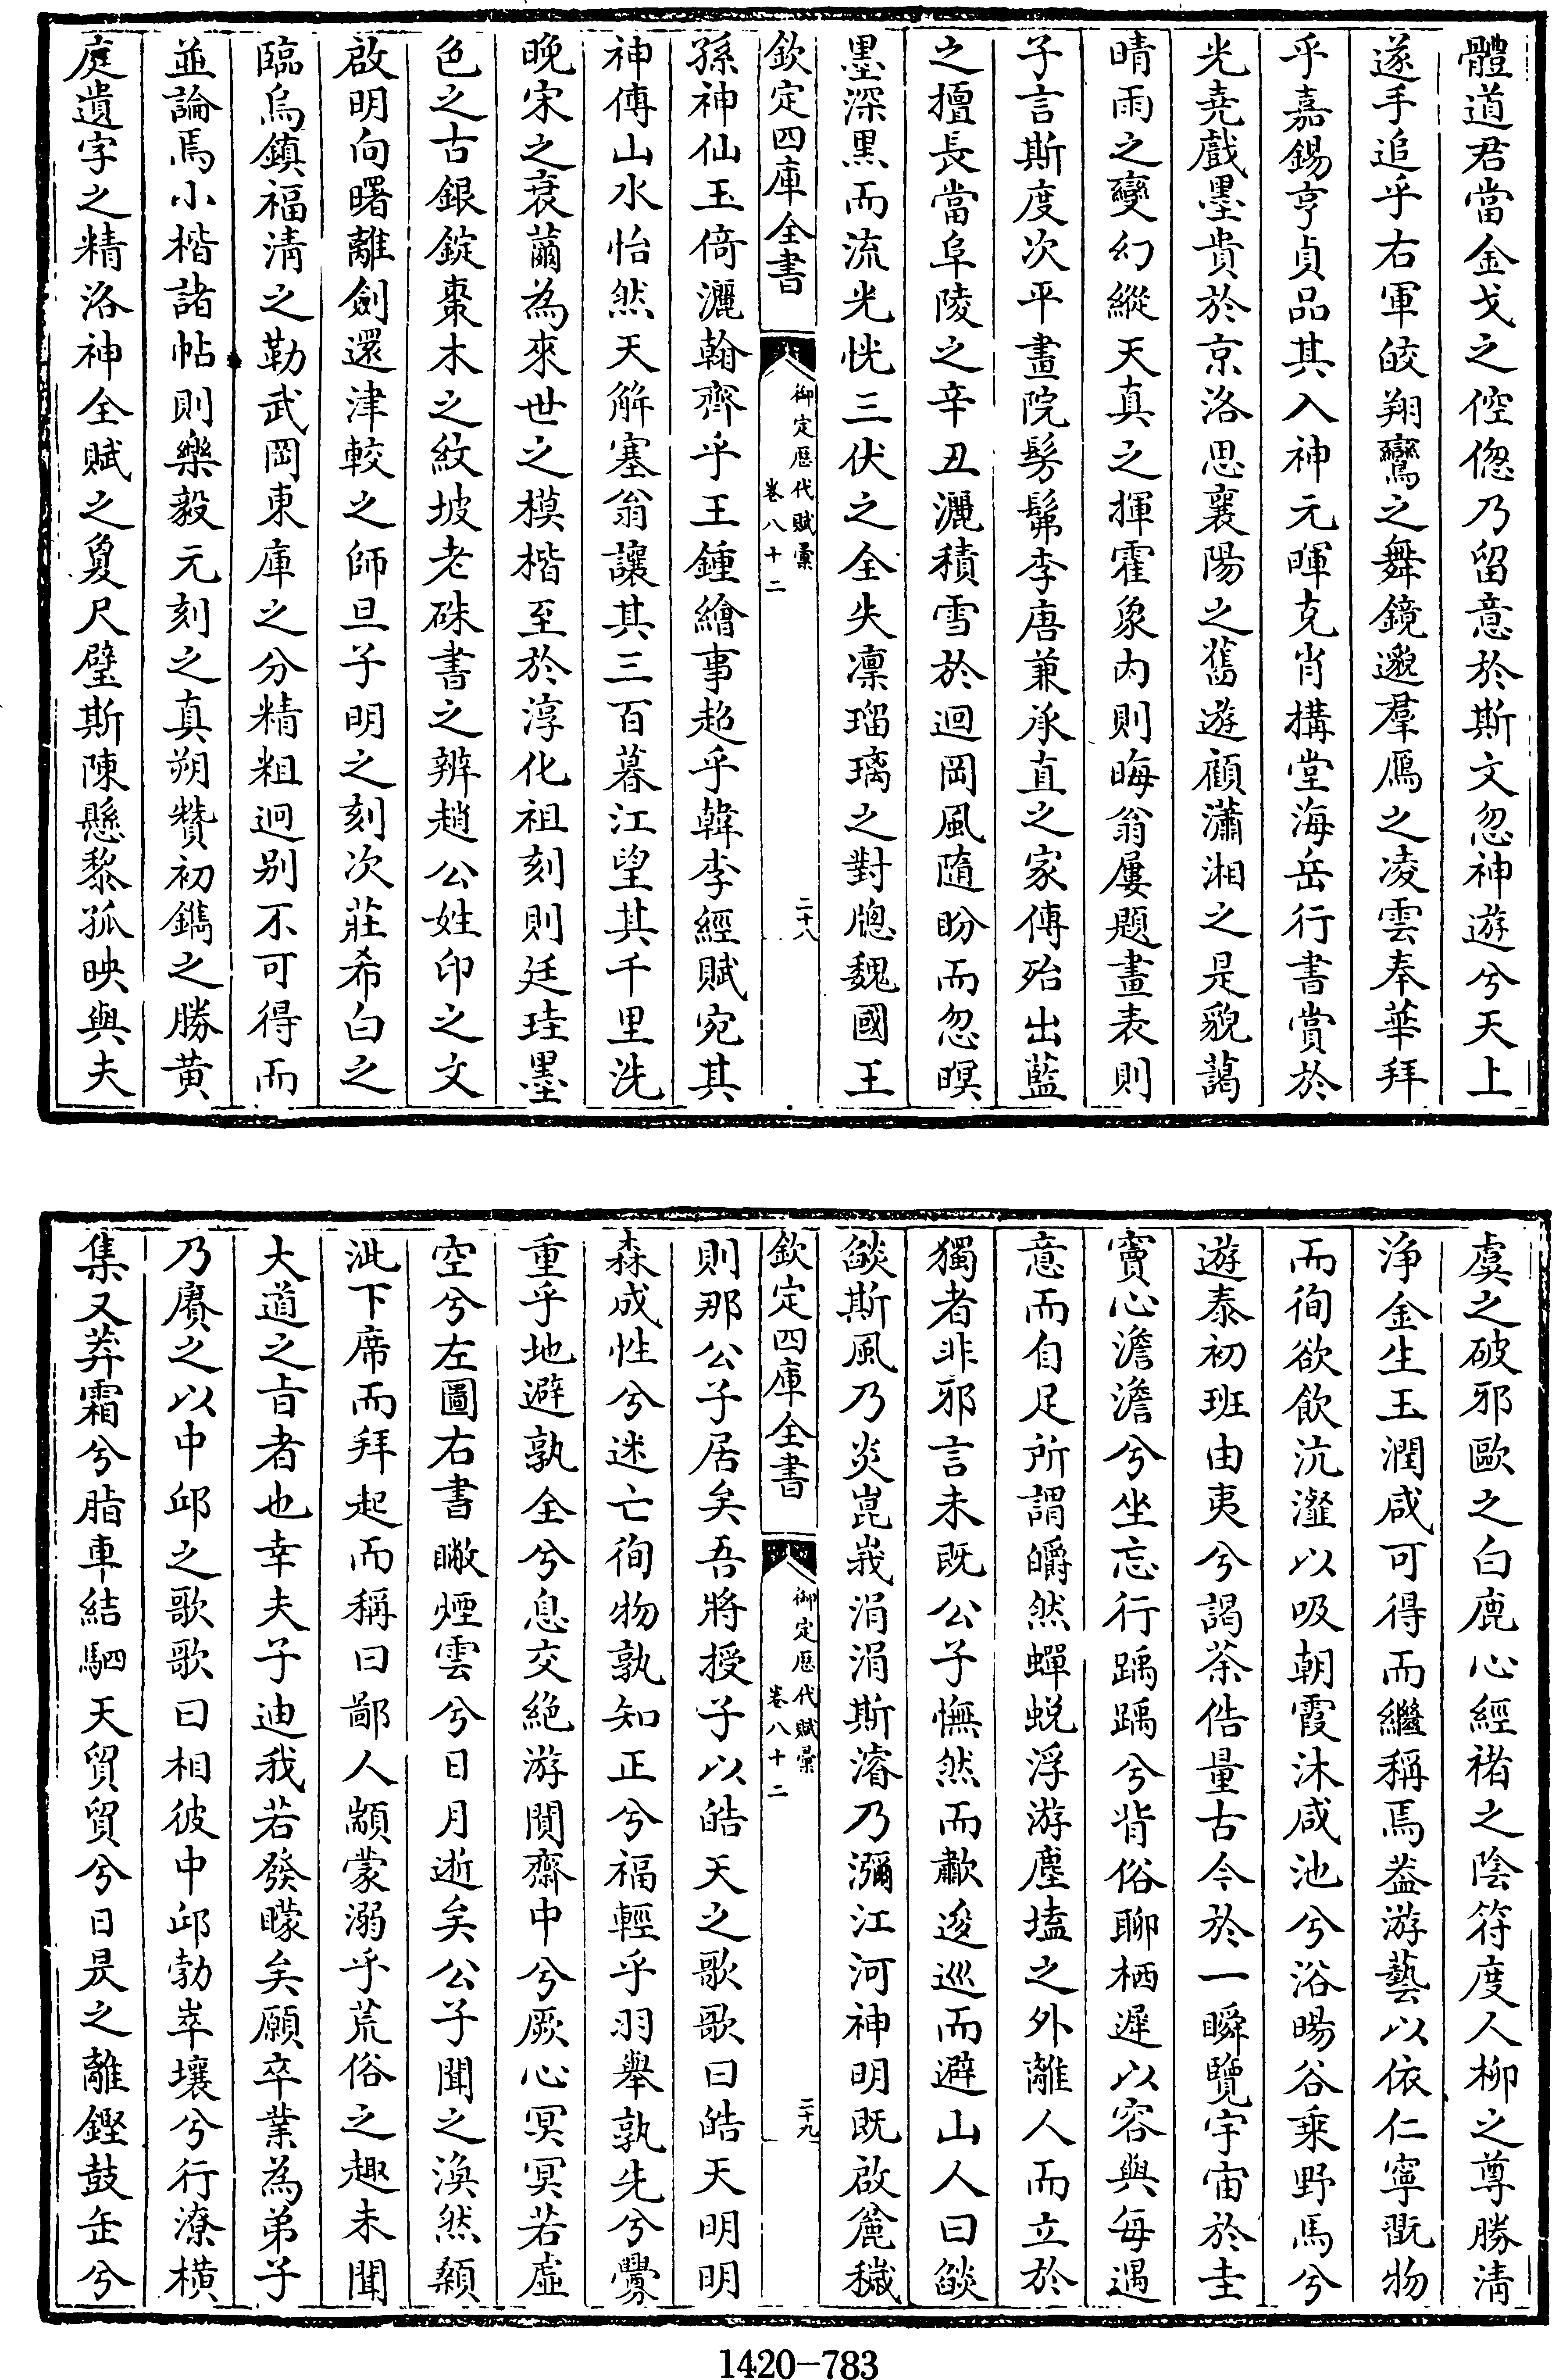 體道君當金戈之倥偬乃留意於斯文忽神遊兮天上
遂手追乎右軍皎翔鸞之舞鏡邈羣鴈之凌雲奉華拜
乎嘉錫亨貞品其入神元暉克肖構堂海岳行書賞於
光堯戲墨貴於京洛思襄陽之舊遊顧瀟湘之是貌藹
晴雨之變幻縱天真之揮霍象內則晦翁屢題畫表則
子言斯度次平畫院髣髴李唐兼承直之家傳殆出藍
之擅長當阜陵之辛丑灑積雪於迴岡風隨盼而忽暝
墨深黑而流光恍三伏之全失凛瑠璃之對牕魏國王
欽定四庫全書
御定歷代賦彙
卷八十二
二十八
孫神仙玉倚灑翰齊乎王鍾繪事超乎韓李經賦宛其
神傳山水怡然天解塞翁讓其三百暮江望其千里洗
晚宋之衰薾為來世之模楷至於淳化祖刻則廷珪墨
色之古銀錠棗木之紋坡老硃書之辨趙公姓印之文
啟明向曙離劍還津較之師旦子明之刻次莊希白之
臨烏鎮福清之勒武岡東庫之分精粗迥别不可得而
並論焉小楷諸帖則樂毅元刻之真朔贊初鐫之勝黄
庭遺字之精洛神全賦之夐尺璧斯陳懸黎孤映與夫
虞之破邪歐之白鹿心經褚之陰符度人柳之尊勝清
浄金生玉潤咸可得而繼稱焉葢游藝以依仁寧翫物
而徇欲飲沆瀣以吸朝霞沐咸池兮浴暘谷乘野馬兮
遊泰初班由夷兮謁荼俈量古今於一瞬覽宇宙於圭
竇心澹澹兮坐忘行踽踽兮背俗聊栖遲以容與每遇
意而自足所謂皭然蟬蜕浮游塵壒之外離人而立於
獨者非邪言未既公子憮然而歗逡巡而避山人曰燄
燄斯風乃炎崑峩涓涓斯濬乃瀰江河神明既啟麄穢
欽定四庫全書
御定歷代賦彙
卷八十二
二十九
則那公子居矣吾將授子以皓天之歌歌曰皓天明明
森成性兮迷亡徇物孰知正兮福輕乎羽舉孰先兮釁
重乎地避孰全兮息交絶游閴齋中兮厥心冥冥若虛
空兮左圖右書瞰煙雲兮日月逝矣公子聞之渙然顙
泚下席而拜起而稱曰鄙人顓蒙溺乎荒俗之趣未聞
大道之㫖者也幸夫子迪我若發矇矣願卒業為弟子
乃賡之以中邱之歌歌曰相彼中邱勃崒壤兮行潦横
集又莽霜兮脂車結駟天貿貿兮日昃之離鏗鼓缶兮
1420-783